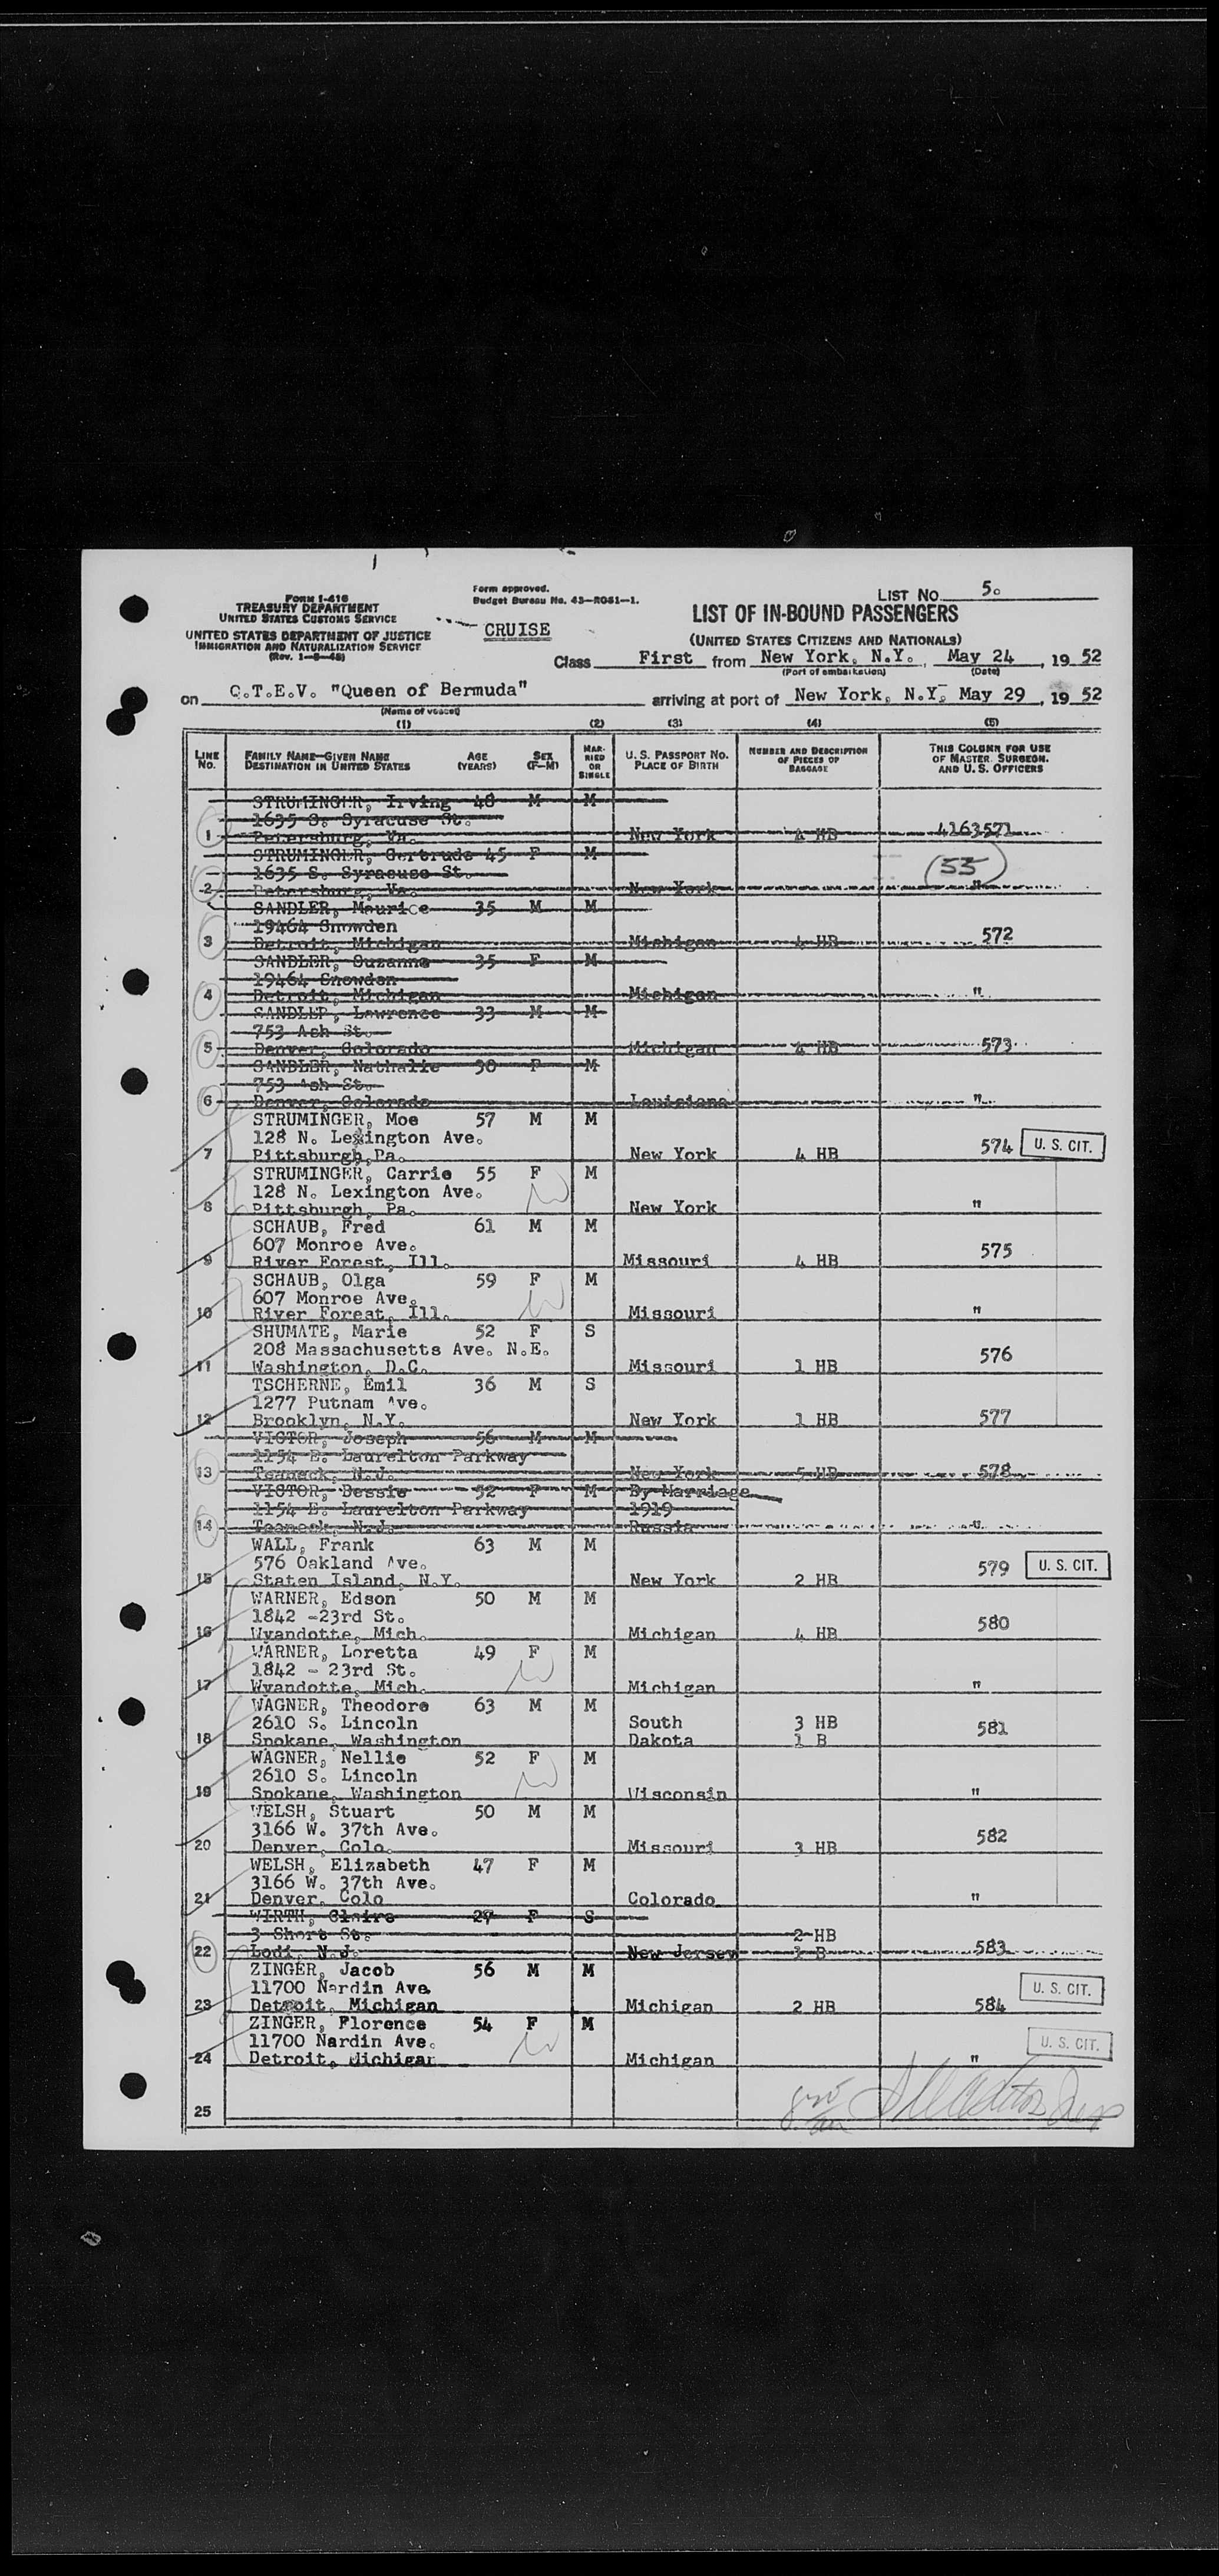 Form I-416
TREASURY DEPARTMENT
UNITED STATES CUSTOMS SERVICE
UNITED STATES DEPARTMENT OF JUSTICE
IMMIGRATION AND NATURALIZATION SERVICE
Form approved.
Budget Bureau No. 43-R081-1.
CRUISE
LIST No. 5.
LIST OF IN-BOUND PASSENGERS
(UNITED STATES CITIZENS AND NATIONALS)
Class First from New York, N.Y., May 24, 1952
(Port of embarkation) (Date)
on Q.T.E.V. "Queen of Bermuda" arriving at port of New York, N.Y. May 29, 1952
(Name of vessel)
(1) (2) (3) (4) (5)
LINE No. FAMILY NAME—GIVEN NAME DESTINATION IN UNITED STATES AGE (YEARS) SEX (F-M) MARRIED OR SINGLE U. S. PASSPORT NO. PLACE OF BIRTH NUMBER AND DESCRIPTION OF PIECES OF BAGGAGE THIS COLUMN FOR USE OF MASTER, SURGEON, AND U. S. OFFICERS
STRUMINGER, Irving 48 M M
1635 S. Syracuse St.
1 Petersburg, Va. New York 4 HB 4163571
STRUMINGER, Gertrude 45 F M
(55)
1635 S. Syracuse St.
2 Petersburg, Va. New York "
SANDLER, Maurice 35 M M
19464 Snowden
3 Detroit, Michigan Michigan 4 HB 572
SANDLER, Suzanne 35 F M
19464 Snowden
4 Detroit, Michigan Michigan "
SANDLER, Lawrence 33 M M
753 Ash St.
5 Denver, Colorado Michigan 4 HB 573
SANDLER, Nathalie 30 F M
753 Ash St.
6 Denver, Colorado Louisiana "
STRUMINGER, Moe 57 M M
128 N. Lexington Ave.
7 Pittsburgh, Pa. New York 4 HB 574 U. S. CIT.
STRUMINGER, Carrie 55 F M
128 N. Lexington Ave.
8 Pittsburgh, Pa. New York "
SCHAUB, Fred 61 M M
607 Monroe Ave.
9 River Forest, Ill. Missouri 4 HB 575
SCHAUB, Olga 59 F M
607 Monroe Ave.
10 River Forest, Ill. Missouri "
SHUMATE, Marie 52 F S
208 Massachusetts Ave. N.E.
11 Washington, D.C. Missouri 1 HB 576
TSCHERNE, Emil 36 M S
1277 Putnam Ave.
12 Brooklyn, N.Y. New York 1 HB 577
VICTOR, Joseph 56 M M
1154 E. Laurelton Parkway
13 Teaneck, N.J. New York 5 HB 578
VICTOR, Bessie 52 F M By Marriage
1154 E. Laurelton Parkway 1919
14 Teaneck, N.J. Russia "
WALL, Frank 63 M M
576 Oakland Ave.
15 Staten Island, N.Y. New York 2 HB 579 U. S. CIT.
WARNER, Edson 50 M M
1842 -23rd St.
16 Wyandotte, Mich. Michigan 4 HB 580
WARNER, Loretta 49 F M
1842 - 23rd St.
17 Wyandotte, Mich. Michigan "
WAGNER, Theodore 63 M M
2610 S. Lincoln South 3 HB
18 Spokane, Washington Dakota 1 B 581
WAGNER, Nellie 52 F M
2610 S. Lincoln
19 Spokane, Washington Wisconsin "
WELSH, Stuart 50 M M
3166 W. 37th Ave.
20 Denver, Colo. Missouri 3 HB 582
WELSH, Elizabeth 47 F M
3166 W. 37th Ave.
21 Denver, Colo Colorado "
WIRTH, Claire 27 F S
3 Short St. 2 HB
22 Lodi, N.J. New Jersey 1 B 583
ZINGER, Jacob 56 M M
11700 Nardin Ave
23 Detroit, Michigan Michigan 2 HB 584 U. S. CIT.
ZINGER, Florence 54 F M
11700 Nardin Ave.
24 Detroit, Michigan Michigan " U. S. CIT.
25